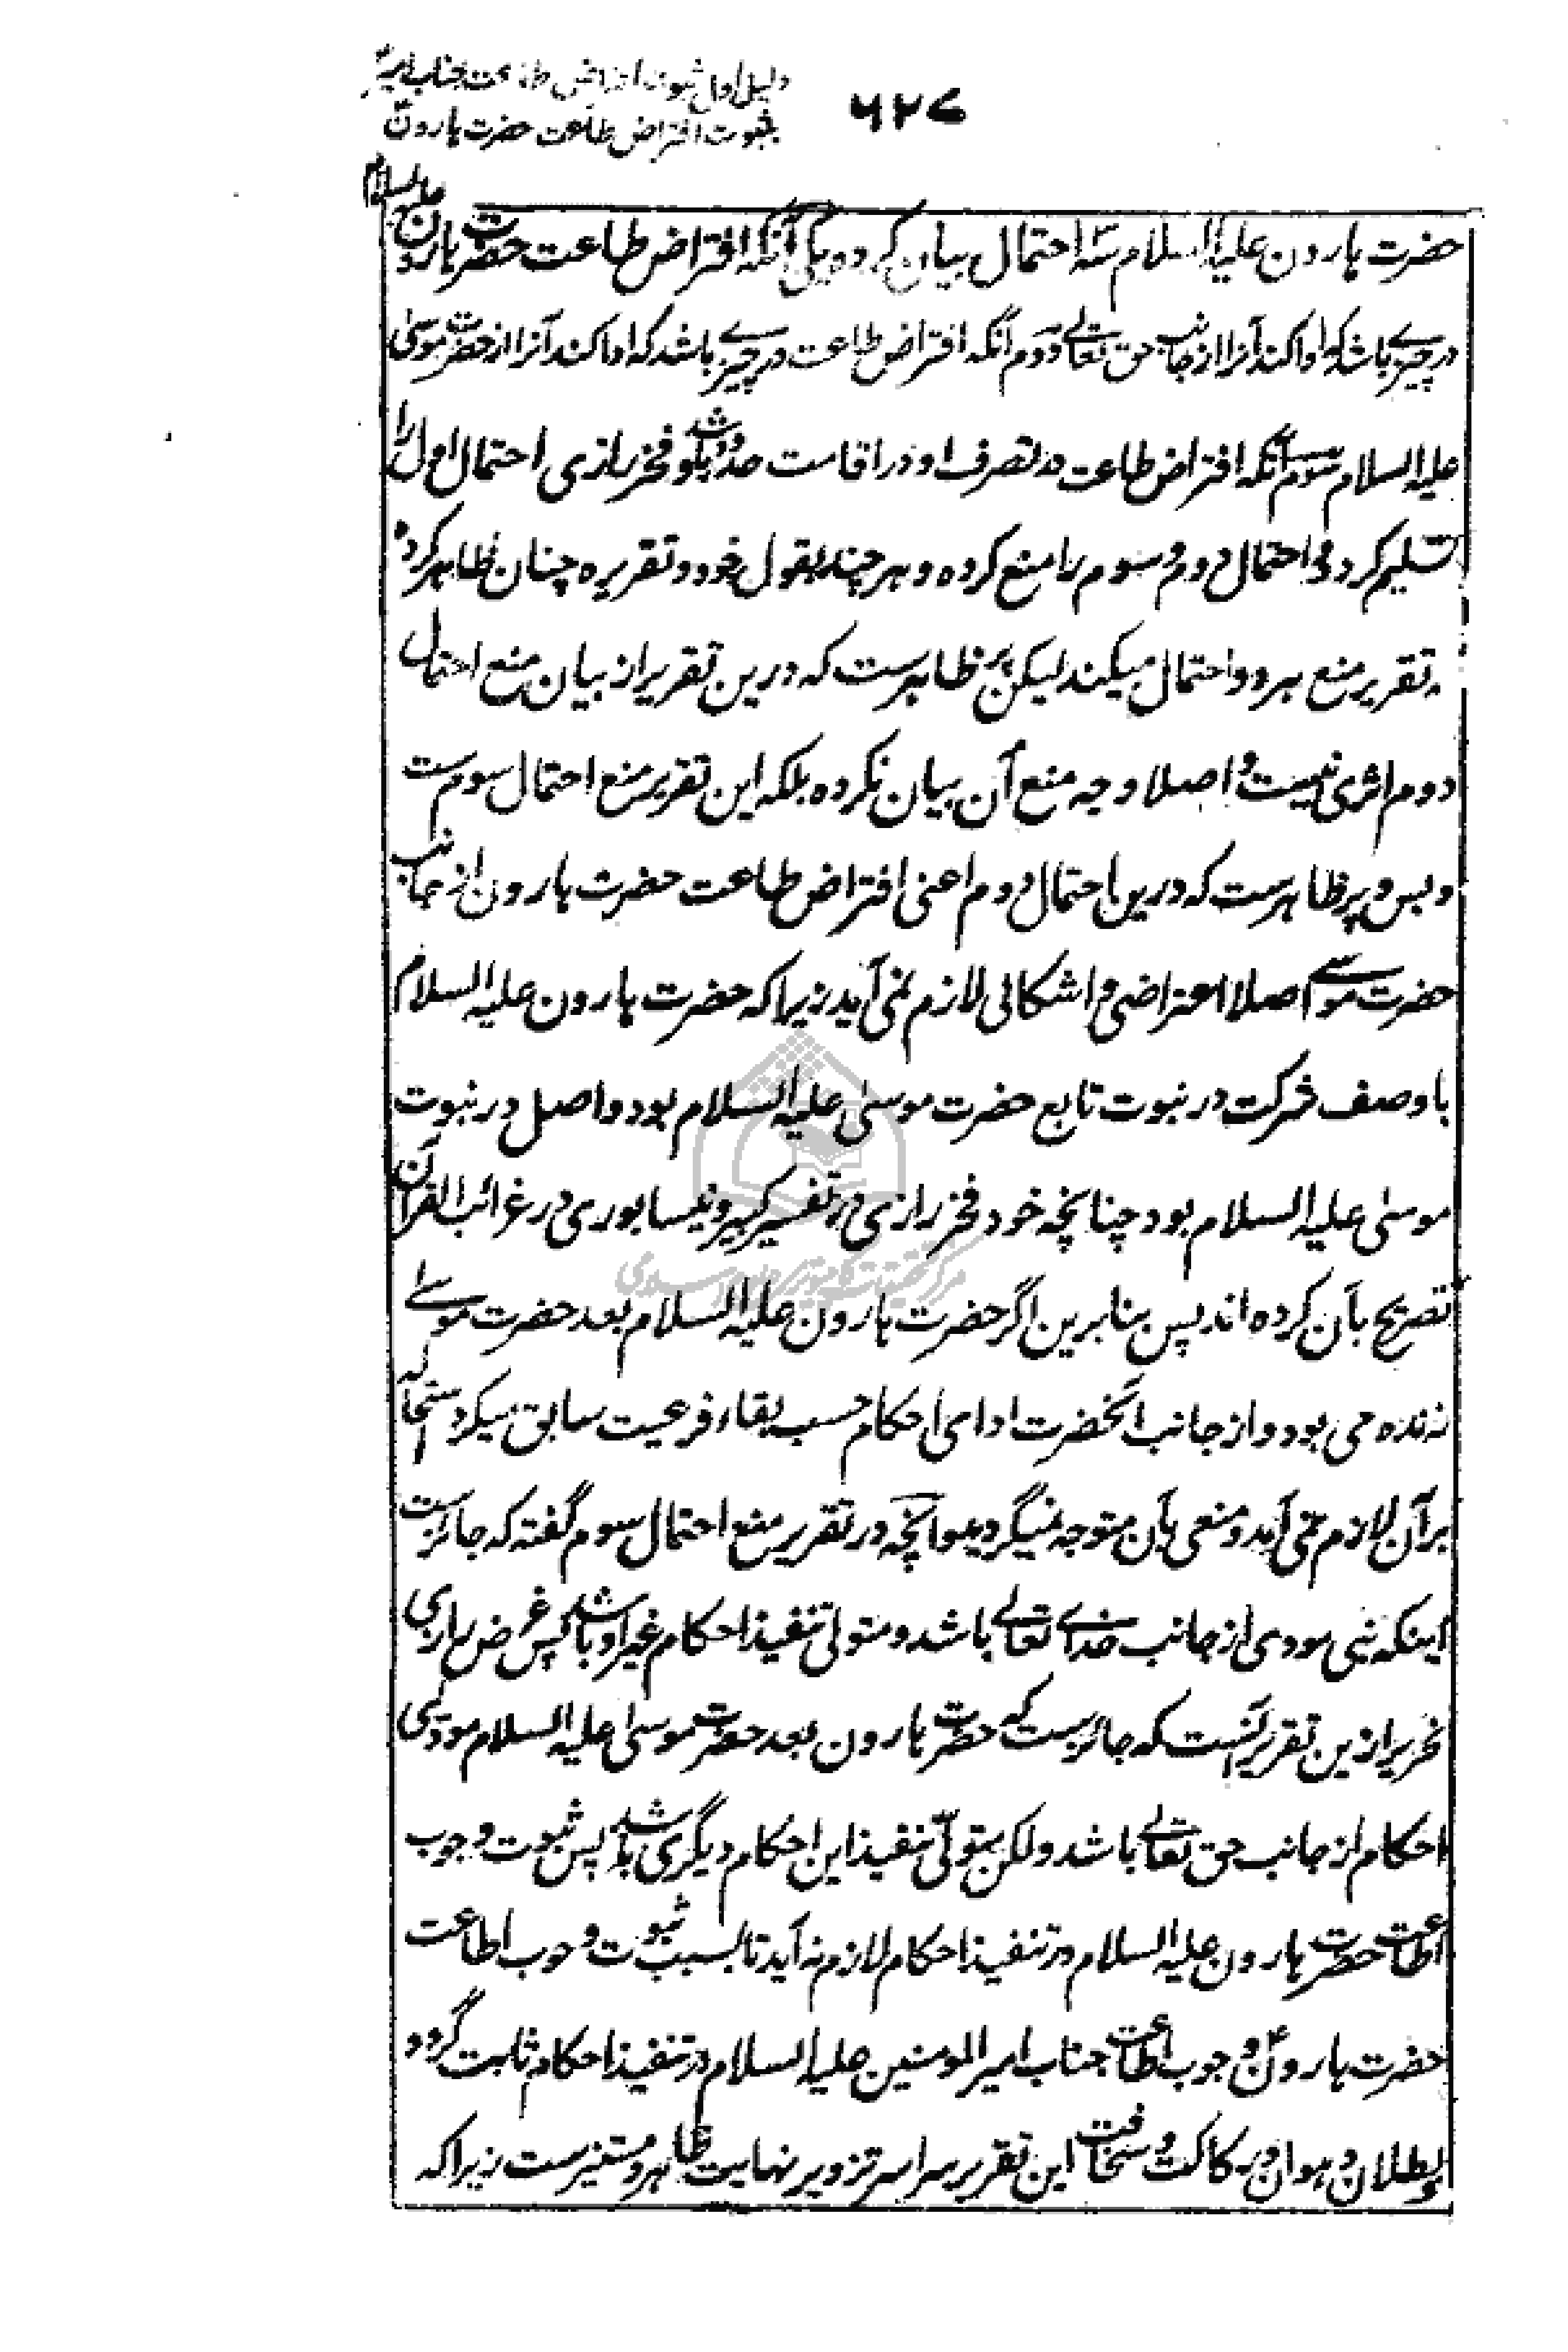 ۶۲۷
دلیل اول ثبوت افتراض طاعت جناب امیرؑ
بثبوت افتراض طاعت حضرت هارونؑ
علیه السلام
حضرت هارون علیه السلام سه احتمال بیان کرده یکی آنکه افتراض طاعت حضرت هارون
در چیزے باشد که ادا کند آنرا از جانب حق تعالے و دوم آنکه افتراض طاعت در چیزے باشد که ادا کند آنرا از حضرت موسی
علیه السلام سوم آنکه افتراض طاعت در تصرف او در اقامت حدود باشد و فخر رازی احتمال اول را
تسلیم کرده و احتمال دوم و سوم را منع کرده و هر چند بقول خود و تقریره چنان ظاهر کرده
که تقریر منع هر دو احتمال میکند لیکن پر ظاهرست که درین تقریر از بیان منع احتمال
دوم اثری نیست و اصلا وجه منع آن بیان نکرده بلکه این تقریر منع احتمال سوم ست
و بس و پر ظاهرست که درین احتمال دوم اعنی افتراض طاعت حضرت هارون از جانب
حضرت موسے اصلا اعتراضی و اشکالی لازم نمی آید زیرا که حضرت هارون علیه السلام
با وصف شرکت در نبوت تابع حضرت موسیٰ علیه السلام بود و اصل در نبوت
موسیٰ علیه السلام بود چنانچه خود فخر رازی در تفسیر کبیر و نیسابوری در غرائب القرآن
تصریح بآن کرده اند پس بنابرین اگر حضرت هارون علیه السلام بعد حضرت موسے
زنده می بود و از جانب آنحضرت ادای احکام حسب بقاء فرعیت سابق میکرد استحاله
بر آن لازم نمی آید و منعی بآن متوجه نمیگردید و آنچه در تقریر منع احتمال سوم گفته که جائزست
اینکه نبی مودی از جانب خداے تعالے باشد و متولی تنفیذ احکام غیر او باشد پس غرض رازی
نحریر ازین تقریر آنست که جائزست که حضرت هارون بعد حضرت موسیٰ علیه السلام مودی
احکام از جانب حق تعالے باشد و لکن متولی تنفیذ این احکام دیگری باشد پس ثبوت وجوب
اطاعت حضرت هارون علیه السلام در تنفیذ احکام لازم نه آید تا بسبب ثبوت وجوب اطاعت
حضرت هارونؑ وجوب اطاعت جناب امیر المومنین علیه السلام در تنفیذ احکام ثابت گردد
و بطلان و هوان و رکاکت و سخافت این تقریر سراسر تزویر نهایت ظاهر و مستنیرست زیرا که
مرکز تحقیقات کامپیوتری علوم اسلامی